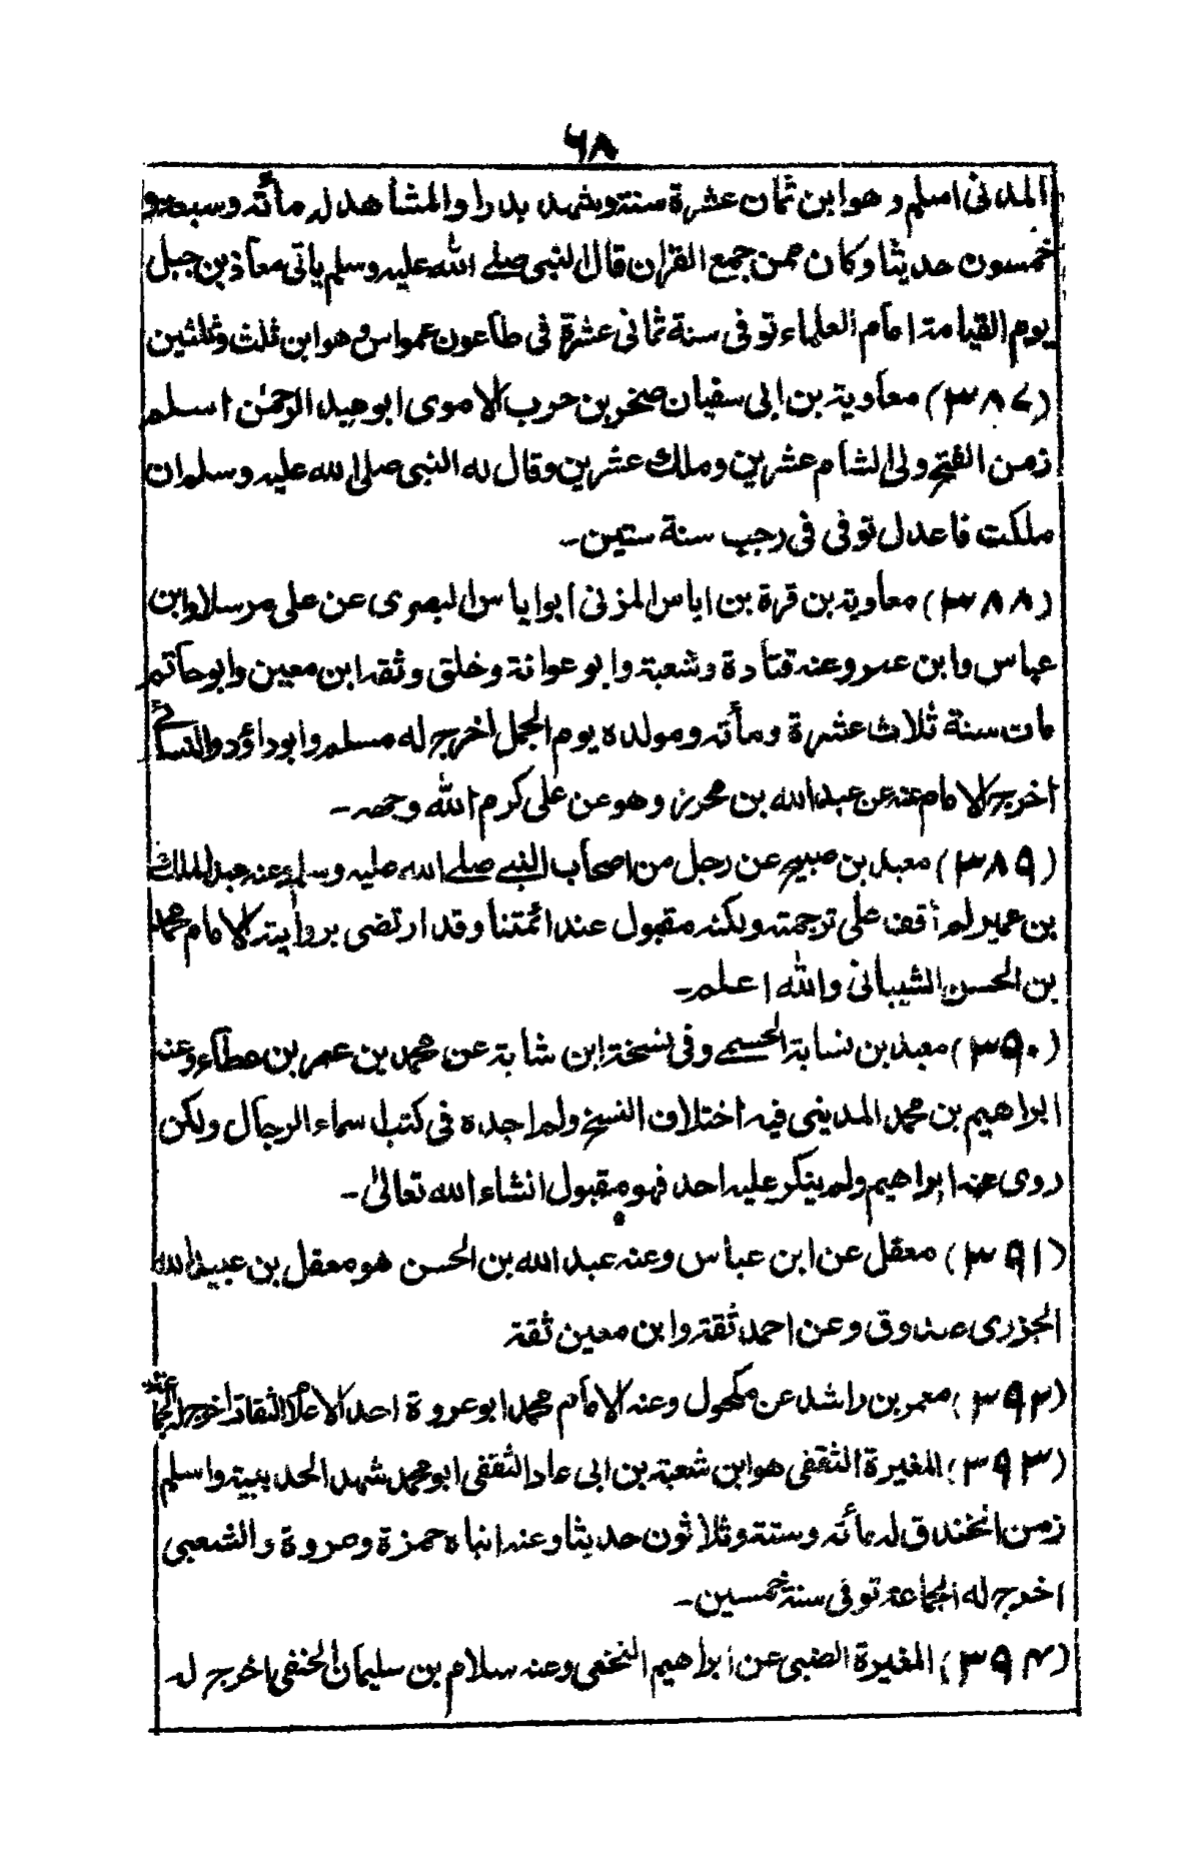 ٦٨
المدنى اسلم وهو ابن ثمان عشرة سنة وشهد بدرا والمشاهد له مأته وسبعة و
خمسون حديثا وكان ممن جمع القران قال النبى صلے الله عليه وسلم ياتى معاذ بن جبل
يوم القيامة امام العلماء توفى سنة ثمانى عشرة فى طاعون عمواس وهو ابن ثلث وثلثين
(٣٨٧) معاوية بن ابى سفيان صخر بن حرب الاموى ابو عبد الرحمٰن اسلم
زمن الفتح ولى الشام عشرين وملك عشرين وقال له النبى صلى الله عليه وسلم ان
ملكت فاعدل توفى فى رجب سنة ستين۔
(٣٨٨) معاوية بن قرة بن اياس المزنى ابو اياس البصرى عن على مرسلا وابن
عباس وابن عمر وعنه قتادة وشعبة وابو عوانة وخلق وثقه ابن معين وابو حاتم
مات سنة ثلاث عشرة ومأته ومولده يوم الجمل اخرج له مسلم وابو داؤد والنسائے
اخرج الامام عنه عن عبد الله بن محرز وهو عن على كرم الله وجهه۔
(٣٨٩) معبد بن صبيح عن رجل من اصحاب النبے صلے الله عليه وسلم وعنه عبد الملك
بن عمير لم أقف على ترجمته ولكنه مقبول عند ائمتنا وقد ارتضى بروايته الامام محمد
بن الحسن الشيبانى والله اعلم۔
(٣٩٠) معبد بن نسابة الحسمے وفى نسخة ابن شابة عن محمد بن عمر بن عطاء وعنه
ابراهيم بن محمد المدينى فيه اختلاف النسخ ولم اجده فى كتب اسماء الرجال ولكن
روى عنه ابراهيم ولم ينكر عليه احد فهو مقبول انشاء الله تعالىٰ۔
(٣٩١) معقل عن ابن عباس وعنه عبد الله بن الحسن هو معقل بن عبيد الله
الجزرى صدوق وعن احمد ثقة وابن معين ثقة
(٣٩٢) معمر بن راشد عن مكحول وعنه الامام محمد ابو عروة احد الاعلام الثقات اخرج له الجماعة
(٣٩٣) المغيرة الثقفى هو ابن شعبة بن ابى عاد الثقفى ابو محمد شهد الحديبية واسلم
زمن الخندق له مأته وستة وثلاثون حديثا وعنه ابناه حمزة وعروة والشعبى
اخرج له الجماعة توفى سنة خمسين۔
(٣٩٤) المغيرة الضبى عن ابراهيم النخعى وعنه سلام بن سليمان الحنفى اخرج له